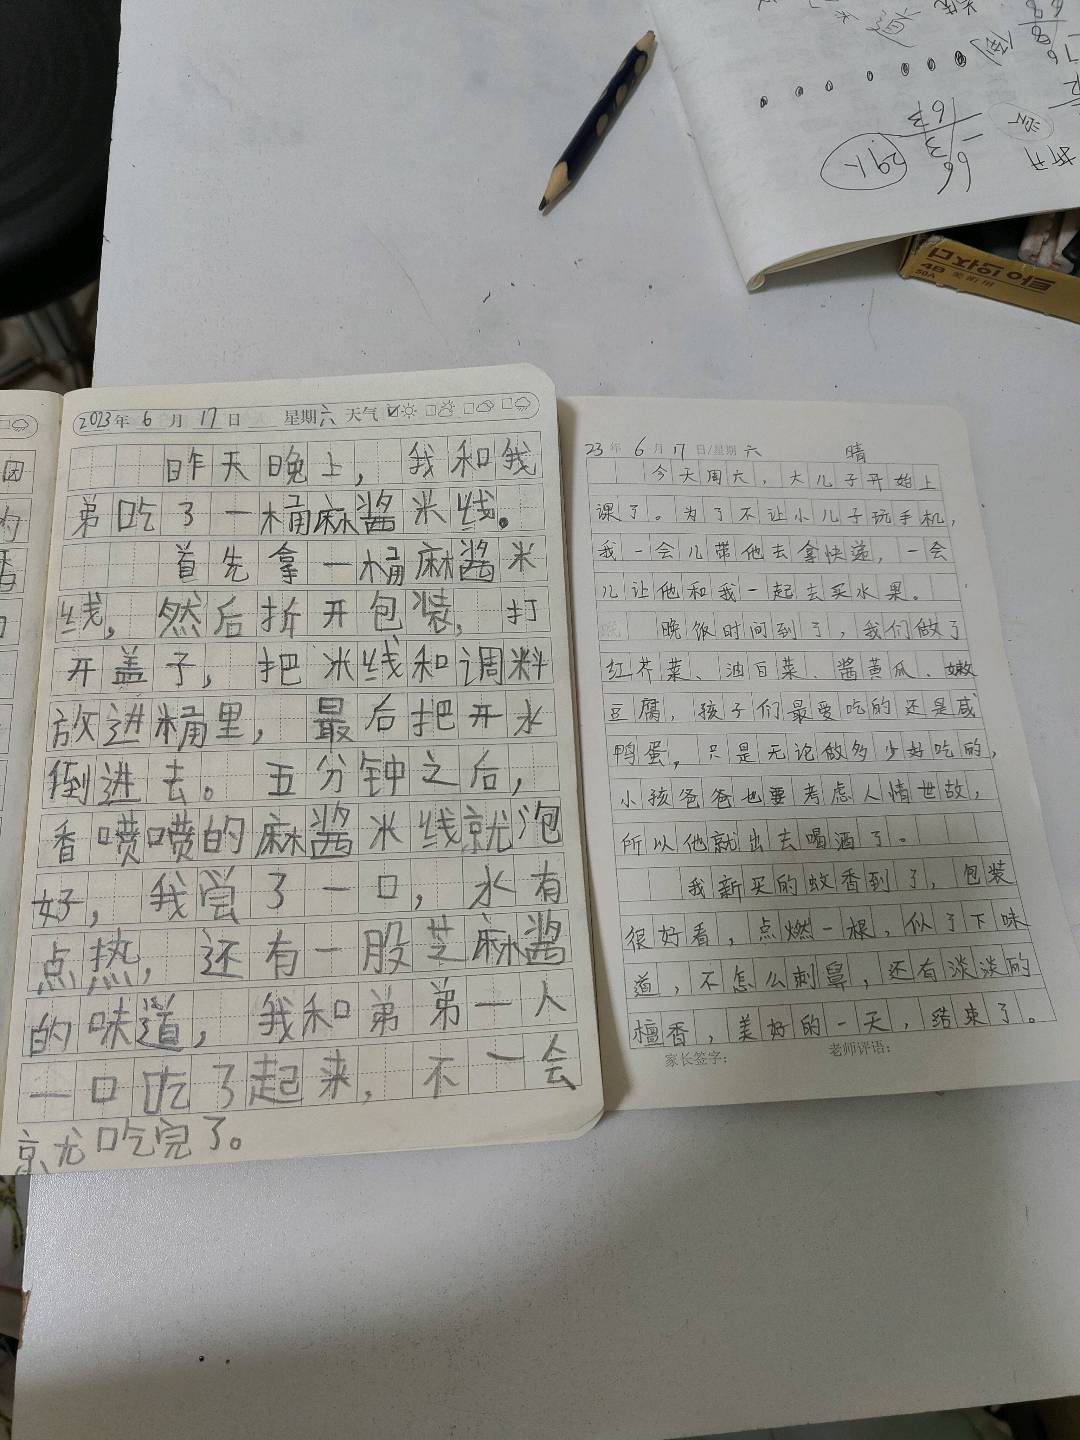 2023年 6 月 17 日 星期六 天气
昨天晚上，我和我
弟吃了一桶麻酱米线。
首先拿一桶麻酱米
线，然后折开包装，打
开盖子，把米线和调料
放进桶里，最后把开水
倒进去。五分钟之后，
香喷喷的麻酱米线就泡
好，我尝了一口，水有
点热，还有一股芝麻酱
的味道，我和弟弟一人
一口吃了起来，不一会
就吃完了。
23 年 6 月 17 日/星期 六 晴
今天周六，大儿子开始上
课了。为了不让小儿子玩手机，
我一会儿带他去拿快递，一会
儿让他和我一起去买水果。
晚饭时间到了，我们做了
红芥菜、油白菜、酱黄瓜、嫩
豆腐，孩子们最爱吃的还是咸
鸭蛋，只是无论做多少好吃的，
小孩爸爸也要考虑人情世故，
所以他就出去喝酒了。
我新买的蚊香到了，包装
很好看，点燃一根，似了下味
道，不怎么刺鼻，还有淡淡的
檀香，美好的一天，结束了。
家长签字： 老师评语：
4B
50A